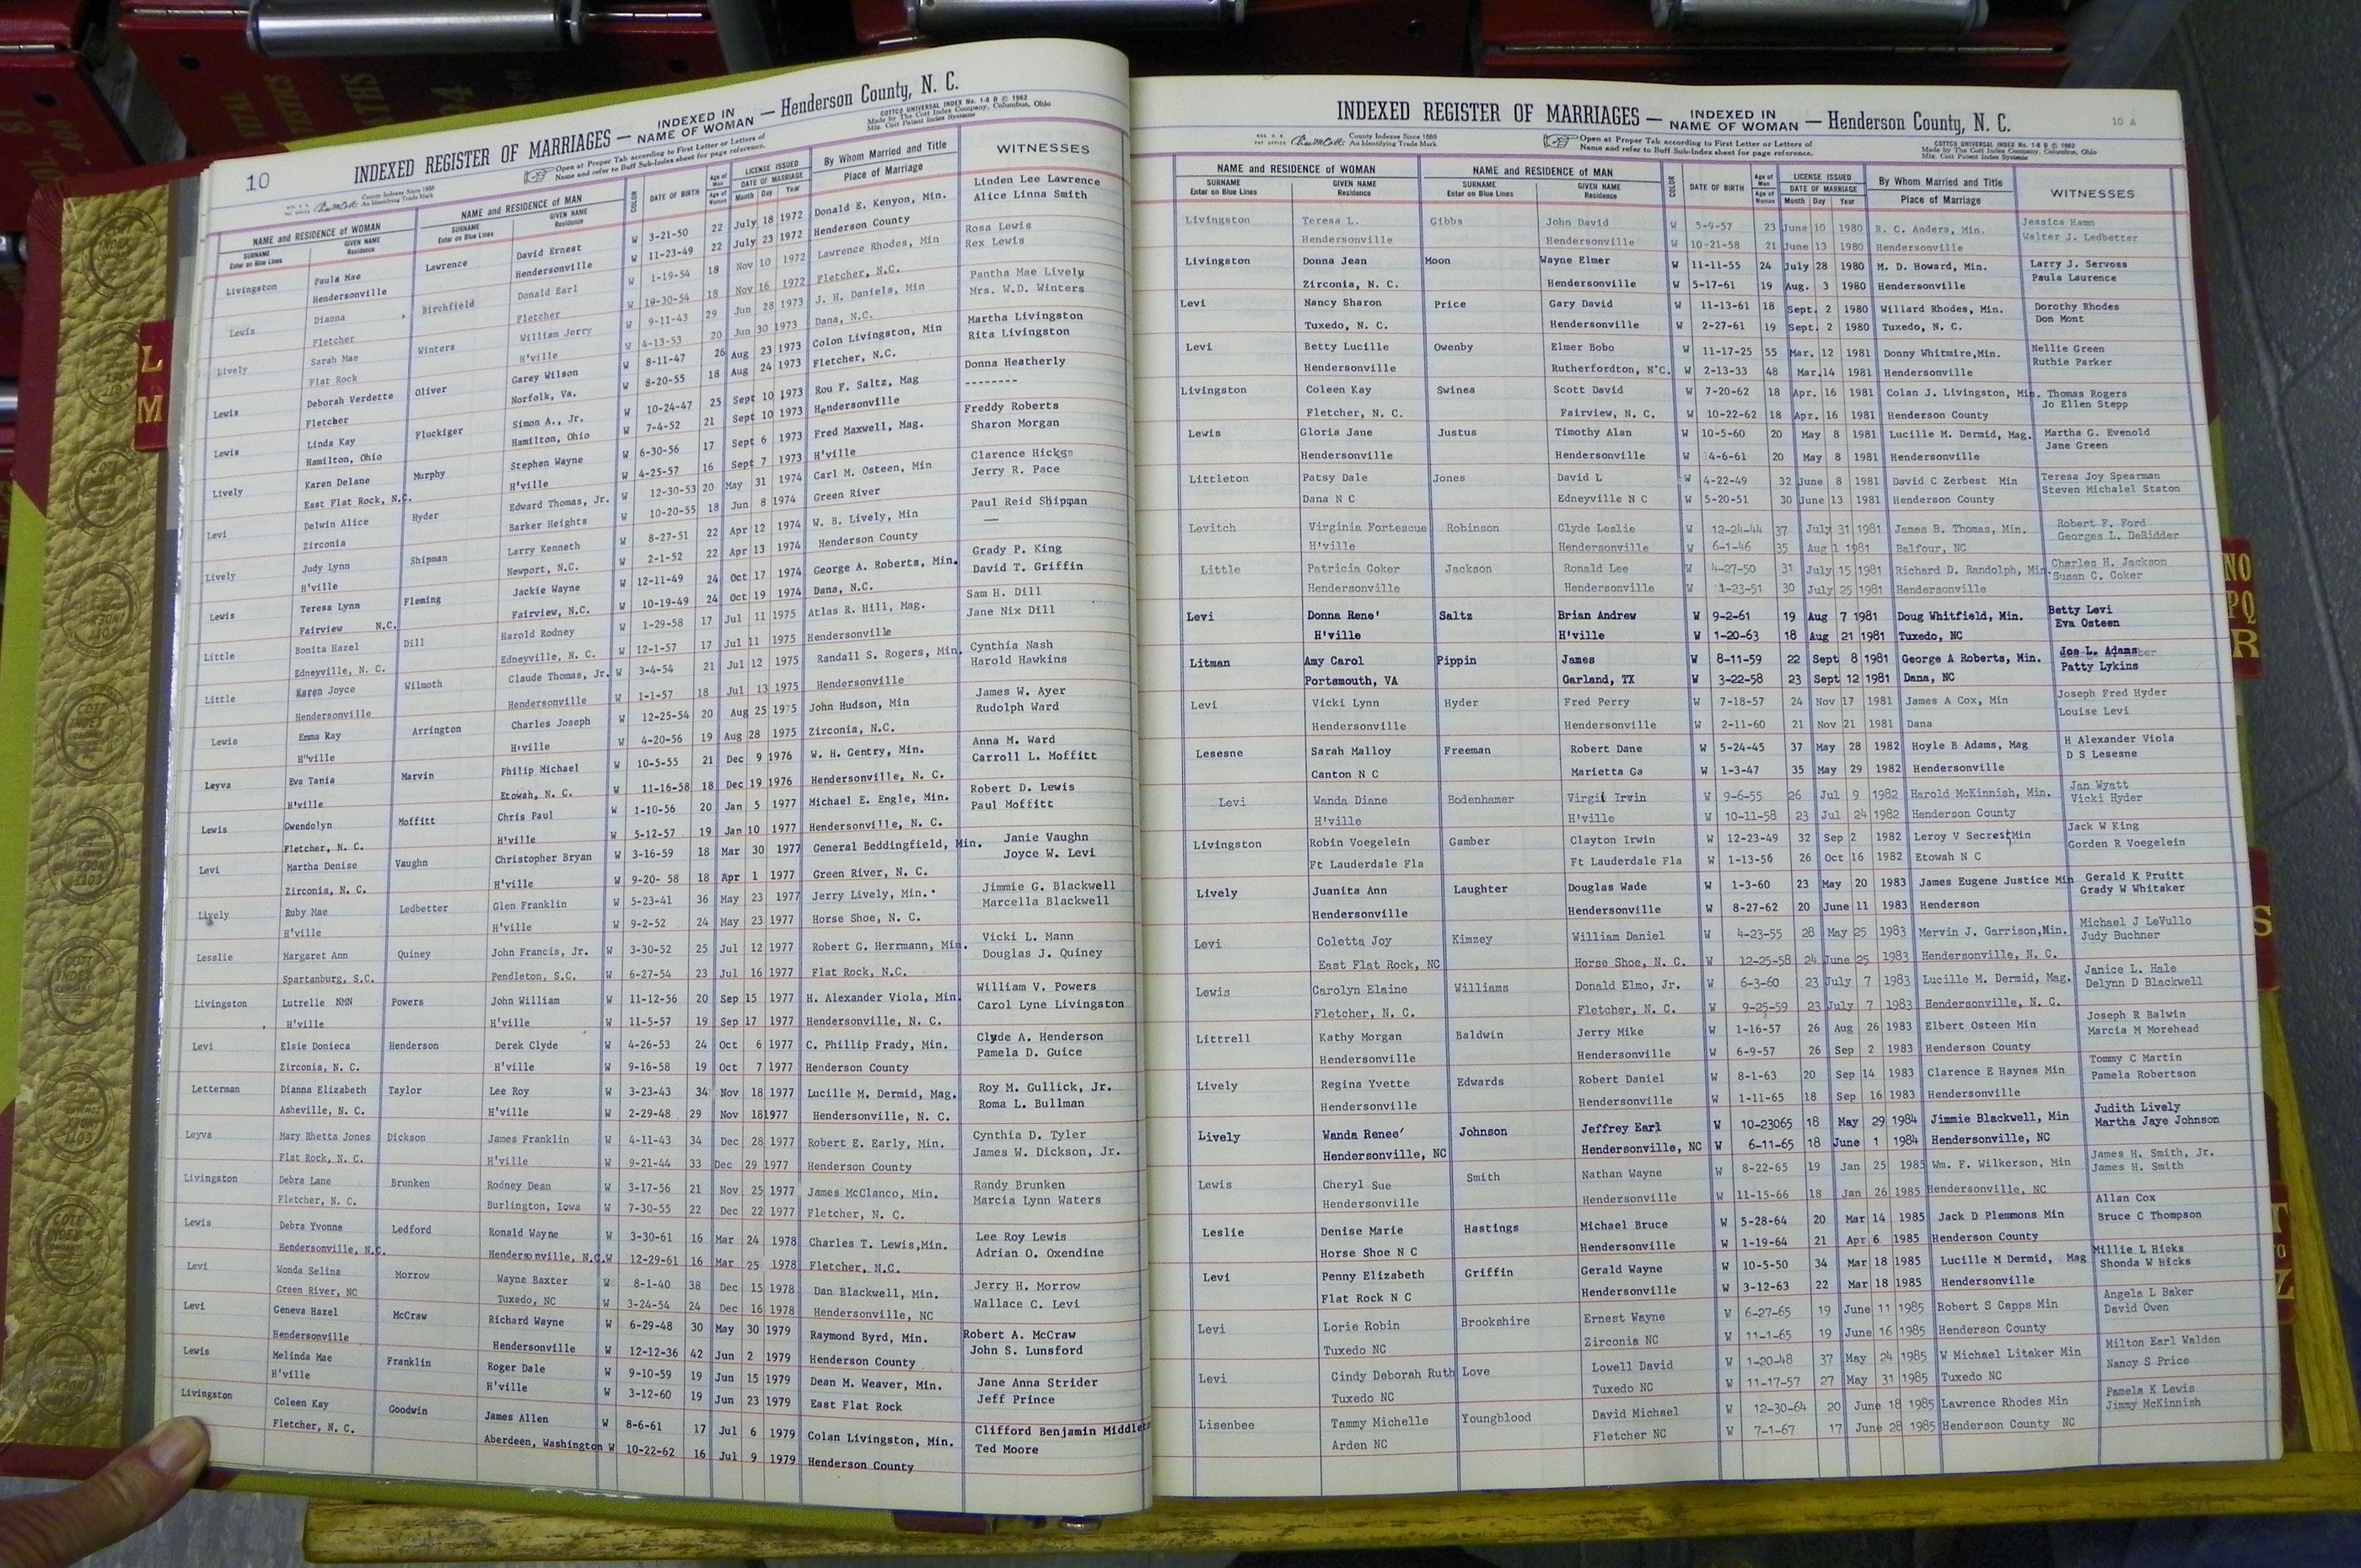 10
INDEXED REGISTER OF MARRIAGES — INDEXED IN NAME OF WOMAN — Henderson County, N. C.
COTTCO UNIVERSAL INDEX No. 1-8 D © 1962
Made by The Cott Index Company, Columbus, Ohio
Mfg. Cott Patent Index Systems
County Indexes Since 1888
An Identifying Trade Mark
Open at Proper Tab according to First Letter or Letters of
Name and refer to Buff Sub-Index sheet for page reference.
NAME and RESIDENCE OF WOMAN NAME and RESIDENCE OF MAN COLOR DATE OF BIRTH Age of Man Age of Woman LICENSE ISSUED DATE OF MARRIAGE By Whom Married and Title WITNESSES
SURNAME Enter on Blue Lines GIVEN NAME Residence SURNAME Enter on Blue Lines GIVEN NAME Residence Month Day Year Place of Marriage
Livingston Paula Mae Lawrence David Ernest W 3-21-50 22 July 18 1972 Donald E. Kenyon, Min. Linden Lee Lawrence
Hendersonville Hendersonville W 11-23-49 22 July 23 1972 Henderson County Alice Linna Smith
Lewis Dianna Birchfield Donald Earl W 1-19-54 18 Nov 10 1972 Lawrence Rhodes, Min Rosa Lewis
Fletcher Fletcher W 10-30-54 18 Nov 16 1972 Fletcher, N.C. Rex Lewis
Lively Sarah Mae Winters William Jerry W 9-11-43 29 Jun 28 1973 J. H. Daniels, Min Pantha Mae Lively
Flat Rock H'ville W 4-13-53 20 Jun 30 1973 Dana, N.C. Mrs. W.D. Winters
Lewis Deborah Verdette Oliver Garey Wilson W 8-11-47 26 Aug 23 1973 Colon Livingston, Min Martha Livingston
Fletcher Norfolk, Va. W 8-20-55 18 Aug 24 1973 Fletcher, N.C. Rita Livingston
Lewis Linda Kay Fluckiger Simon A., Jr. W 10-24-47 25 Sept 10 1973 Rou F. Saltz, Mag Donna Heatherly
Hamilton, Ohio Hamilton, Ohio W 7-4-52 21 Sept 10 1973 Hendersonville --------
Lively Karen Delane Murphy Stephen Wayne W 6-30-56 17 Sept 6 1973 Fred Maxwell, Mag. Freddy Roberts
East Flat Rock, N.C. H'ville W 4-25-57 16 Sept 7 1973 H'ville Sharon Morgan
Levi Delwin Alice Hyder Edward Thomas, Jr. W 12-30-53 20 May 31 1974 Carl M. Osteen, Min Clarence Hickss
Zirconia Barker Heights W 10-20-55 18 Jun 8 1974 Green River Jerry R. Pace
Lively Judy Lynn Shipman Larry Kenneth W 8-27-51 22 Apr 12 1974 W. B. Lively, Min Paul Reid Shipman
H'ville Newport, N.C. W 2-1-52 22 Apr 13 1974 Henderson County —
Lewis Teresa Lynn Fleming Jackie Wayne W 12-11-49 24 Oct 17 1974 George A. Roberts, Min. Grady P. King
Fairview N.C. Fairview, N.C. W 10-19-49 24 Oct 19 1974 Dana, N.C. David T. Griffin
Little Bonita Hazel Dill Harold Rodney W 1-29-58 17 Jul 11 1975 Atlas R. Hill, Mag. Sam H. Dill
Edneyville, N. C. Edneyville, N. C. W 12-1-57 17 Jul 11 1975 Hendersonville Jane Nix Dill
Little Karen Joyce Wilmoth Claude Thomas, Jr. W 3-4-54 21 Jul 12 1975 Randall S. Rogers, Min. Cynthia Nash
Hendersonville Hendersonville W 1-1-57 18 Jul 13 1975 Hendersonville Harold Hawkins
Lewis Emma Kay Arrington Charles Joseph W 12-25-54 20 Aug 25 1975 John Hudson, Min James W. Ayer
H"ville H'ville W 4-20-56 19 Aug 28 1975 Zirconia, N.C. Rudolph Ward
Leyva Eva Tania Marvin Philip Michael W 10-5-55 21 Dec 9 1976 W. H. Gentry, Min. Anna M. Ward
H'ville Etowah, N. C. W 11-16-58 18 Dec 19 1976 Hendersonville, N. C. Carroll L. Moffitt
Lewis Gwendolyn Moffitt Chris Paul W 1-10-56 20 Jan 5 1977 Michael E. Engle, Min. Robert D. Lewis
Fletcher, N. C. H'ville W 5-12-57 19 Jan 10 1977 Hendersonville, N. C. Paul Moffitt
Levi Martha Denise Vaughn Christopher Bryan W 3-16-59 18 Mar 30 1977 General Beddingfield, Min. Janie Vaughn
Zirconia, N. C. H'ville W 9-20- 58 18 Apr 1 1977 Green River, N. C. Joyce W. Levi
Lively Ruby Mae Ledbetter Glen Franklin W 5-23-41 36 May 23 1977 Jerry Lively, Min. Jimmie G. Blackwell
H'ville H'ville W 9-2-52 24 May 23 1977 Horse Shoe, N. C. Marcella Blackwell
Lesslie Margaret Ann Quiney John Francis, Jr. W 3-30-52 25 Jul 12 1977 Robert G. Herrmann, Min. Vicki L. Mann
Spartanburg, S.C. Pendleton, S.C. W 6-27-54 23 Jul 16 1977 Flat Rock, N.C. Douglas J. Quiney
Livingston Lutrelle NMN Powers John William W 11-12-56 20 Sep 15 1977 H. Alexander Viola, Min. William V. Powers
H'ville H'ville W 11-5-57 19 Sep 17 1977 Hendersonville, N. C. Carol Lyne Livingston
Levi Elsie Donieca Henderson Derek Clyde W 4-26-53 24 Oct 6 1977 C. Phillip Frady, Min. Clyde A. Henderson
Zirconia, N. C. H'ville W 9-16-58 19 Oct 7 1977 Henderson County Pamela D. Guice
Letterman Dianna Elizabeth Taylor Lee Roy W 3-23-43 34 Nov 18 1977 Lucille M. Dermid, Mag. Roy M. Gullick, Jr.
Asheville, N. C. H'ville W 2-29-48 29 Nov 18 1977 Hendersonville, N. C. Roma L. Bullman
Leyva Mary Rhetta Jones Dickson James Franklin W 4-11-43 34 Dec 28 1977 Robert E. Early, Min. Cynthia D. Tyler
Flat Rock, N. C. H'ville W 9-21-44 33 Dec 29 1977 Henderson County James W. Dickson, Jr.
Livingston Debra Lane Brunken Rodney Dean W 3-17-56 21 Nov 25 1977 James McClanco, Min. Randy Brunken
Fletcher, N. C. Burlington, Iowa W 7-30-55 22 Dec 22 1977 Fletcher, N. C. Marcia Lynn Waters
Lewis Debra Yvonne Ledford Ronald Wayne W 3-30-61 16 Mar 24 1978 Charles T. Lewis,Min. Lee Roy Lewis
Hendersonville, N.C. Hendersonville, N.C. W 12-29-61 16 Mar 25 1978 Fletcher, N.C. Adrian O. Oxendine
Levi Wonda Selina Morrow Wayne Baxter W 8-1-40 38 Dec 15 1978 Dan Blackwell, Min. Jerry H. Morrow
Green River, NC Tuxedo, NC W 3-24-54 24 Dec 16 1978 Hendersonville, NC Wallace C. Levi
Levi Geneva Hazel McCraw Richard Wayne W 6-29-48 30 May 30 1979 Raymond Byrd, Min. Robert A. McCraw
Hendersonville Hendersonville W 12-12-36 42 Jun 2 1979 Henderson County John S. Lunsford
Lewis Melinda Mae Franklin Roger Dale W 9-10-59 19 Jun 15 1979 Dean M. Weaver, Min. Jane Anna Strider
H'ville H'ville W 3-12-60 19 Jun 23 1979 East Flat Rock Jeff Prince
Livingston Coleen Kay Goodwin James Allen W 8-6-61 17 Jul 6 1979 Colan Livingston, Min. Clifford Benjamin Middlet
Fletcher, N. C. Aberdeen, Washington W 10-22-62 16 Jul 9 1979 Henderson County Ted Moore
INDEXED REGISTER OF MARRIAGES — INDEXED IN NAME OF WOMAN — Henderson County, N. C.
10 A
County Indexes Since 1888
An Identifying Trade Mark
Open at Proper Tab according to First Letter or Letters of
Name and refer to Buff Sub-Index sheet for page reference.
COTTCO UNIVERSAL INDEX No. 1-8 D © 1962
Made by The Cott Index Company, Columbus, Ohio
Mfg. Cott Patent Index Systems
NAME and RESIDENCE OF WOMAN NAME and RESIDENCE OF MAN COLOR DATE OF BIRTH Age of Man Age of Woman LICENSE ISSUED DATE OF MARRIAGE By Whom Married and Title WITNESSES
SURNAME Enter on Blue Lines GIVEN NAME Residence SURNAME Enter on Blue Lines GIVEN NAME Residence Month Day Year Place of Marriage
Livingston Teresa L. Gibbs John David W 5-9-57 23 June 10 1980 R. C. Anders, Min. Jessica Hamn
Hendersonville Hendersonville W 10-21-58 21 June 13 1980 Hendersonville Walter J. Ledbetter
Livingston Donna Jean Moon Wayne Elmer W 11-11-55 24 July 28 1980 M. D. Howard, Min. Larry J. Servoss
Zirconia, N. C. Hendersonville W 5-17-61 19 Aug. 3 1980 Hendersonville Paula Laurence
Levi Nancy Sharon Price Gary David W 11-13-61 18 Sept. 2 1980 Willard Rhodes, Min. Dorothy Rhodes
Tuxedo, N. C. Hendersonville W 2-27-61 19 Sept. 2 1980 Tuxedo, N. C. Don Mont
Levi Betty Lucille Owenby Elmer Bobo W 11-17-25 55 Mar. 12 1981 Donny Whitmire,Min. Nellie Green
Hendersonville Rutherfordton, N.C. W 2-13-33 48 Mar.14 1981 Hendersonville Ruthie Parker
Livingston Coleen Kay Swinea Scott David W 7-20-62 18 Apr. 16 1981 Colan J. Livingston, Min. Thomas Rogers
Fletcher, N. C. Fairview, N. C. W 10-22-62 18 Apr. 16 1981 Henderson County Jo Ellen Stepp
Lewis Gloria Jane Justus Timothy Alan W 10-5-60 20 May 8 1981 Lucille M. Dermid, Mag. Martha G. Evenold
Hendersonville Hendersonville W 4-6-61 20 May 8 1981 Hendersonville Jane Green
Littleton Patsy Dale Jones David L W 4-22-49 32 June 8 1981 David C Zerbest Min Teresa Joy Spearman
Dana N C Edneyville N C W 5-20-51 30 June 13 1981 Henderson County Steven Michalel Staton
Levitch Virginia Fortescue Robinson Clyde Leslie W 12-24-44 37 July 31 1981 James B. Thomas, Min. Robert F. Ford
H'ville Hendersonville W 6-1-46 35 Aug 1 1981 Balfour, NC Georges L. DeRidder
Little Patricia Coker Jackson Ronald Lee W 4-27-50 31 July 15 1981 Richard D. Randolph, Min. Charles H. Jackson
Hendersonville Hendersonville W 1-23-51 30 July 25 1981 Hendersonville Susan C. Coker
Levi Donna Rene' Saltz Brian Andrew W 9-2-61 19 Aug 7 1981 Doug Whitfield, Min. Betty Levi
H'ville H'ville W 1-20-63 18 Aug 21 1981 Tuxedo, NC Eva Osteen
Litman Amy Carol Pippin James W 8-11-59 22 Sept 8 1981 George A Roberts, Min. Joe L. Adams
Portsmouth, VA Garland, TX W 3-22-58 23 Sept 12 1981 Dana, NC Patty Lykins
Levi Vicki Lynn Hyder Fred Perry W 7-18-57 24 Nov 17 1981 James A Cox, Min Joseph Fred Hyder
Hendersonville Hendersonville W 2-11-60 21 Nov 21 1981 Dana Louise Levi
Lesesne Sarah Malloy Freeman Robert Dane W 5-24-45 37 May 28 1982 Hoyle B Adams, Mag H Alexander Viola
Canton N C Marietta Ga W 1-3-47 35 May 29 1982 Hendersonville D S Lesesne
Levi Wanda Diane Bodenhamer Virgil Irvin W 9-6-55 26 Jul 9 1982 Harold McKinnish, Min. Jan Wyatt
H'ville H'ville W 10-11-58 23 Jul 24 1982 Henderson County Vicki Hyder
Livingston Robin Voegelein Gamber Clayton Irwin W 12-23-49 32 Sep 2 1982 Leroy V Secrest Min Jack W King
Ft Lauderdale Fla Ft Lauderdale Fla W 1-13-56 26 Oct 16 1982 Etowah N C Gorden R Voegelein
Lively Juanita Ann Laughter Douglas Wade W 1-3-60 23 May 20 1983 James Eugene Justice Min Gerald K Pruitt
Hendersonville Hendersonville W 8-27-62 20 June 11 1983 Henderson Grady W Whitaker
Levi Coletta Joy Kimzey William Daniel W 4-23-55 28 May 25 1983 Mervin J. Garrison,Min. Michael J LeVullo
East Flat Rock, NC Horse Shoe, N. C. W 12-25-58 24 June 25 1983 Hendersonville, N. C. Judy Buchner
Lewis Carolyn Elaine Williams Donald Elmo, Jr. W 6-3-60 23 July 7 1983 Lucille M. Dermid, Mag. Janice L. Hale
Fletcher, N. C. Fletcher, N. C. W 9-25-59 23 July 7 1983 Hendersonville, N. C. Delynn D Blackwell
Littrell Kathy Morgan Baldwin Jerry Mike W 1-16-57 26 Aug 26 1983 Elbert Osteen Min Joseph R Balwin
Hendersonville Hendersonville W 6-9-57 26 Sep 2 1983 Henderson County Marcia M Morehead
Lively Regina Yvette Edwards Robert Daniel W 8-1-63 20 Sep 14 1983 Clarence E Haynes Min Tommy C Martin
Hendersonville Hendersonville W 1-11-65 18 Sep 16 1983 Hendersonville Pamela Robertson
Lively Wanda Renee' Johnson Jeffrey Earl W 10-23065 18 May 29 1984 Jimmie Blackwell, Min Judith Lively
Hendersonville, NC Hendersonville, NC W 6-11-65 18 June 1 1984 Hendersonville, NC Martha Jaye Johnson
Lewis Cheryl Sue Smith Nathan Wayne W 8-22-65 19 Jan 25 1985 Wm. F. Wilkerson, Min James H. Smith, Jr.
Hendersonville Hendersonville W 11-15-66 18 Jan 26 1985 Hendersonville, NC James H. Smith
Leslie Denise Marie Hastings Michael Bruce W 5-28-64 20 Mar 14 1985 Jack D Plemmons Min Allan Cox
Horse Shoe N C Hendersonville W 1-19-64 21 Apr 6 1985 Henderson County Bruce C Thompson
Levi Penny Elizabeth Griffin Gerald Wayne W 10-5-50 34 Mar 18 1985 Lucille M Dermid, Mag Millie L Hicks
Flat Rock N C Hendersonville W 3-12-63 22 Mar 18 1985 Hendersonville Shonda W Hicks
Levi Lorie Robin Brookshire Ernest Wayne W 6-27-65 19 June 11 1985 Robert S Capps Min Angela L Baker
Tuxedo NC Zirconia NC W 11-1-65 19 June 16 1985 Henderson County David Owen
Levi Cindy Deborah Ruth Love Lowell David W 1-20-48 37 May 24 1985 W Michael Litaker Min Milton Earl Walden
Tuxedo NC Tuxedo NC W 11-17-57 27 May 31 1985 Tuxedo NC Nancy S Price
Lisenbee Tammy Michelle Youngblood David Michael W 12-30-64 20 June 18 1985 Lawrence Rhodes Min Pamela K Lewis
Arden NC Fletcher NC W 7-1-67 17 June 28 1985 Henderson County NC Jimmy McKinnish
L
M
NO
PQ
R
S